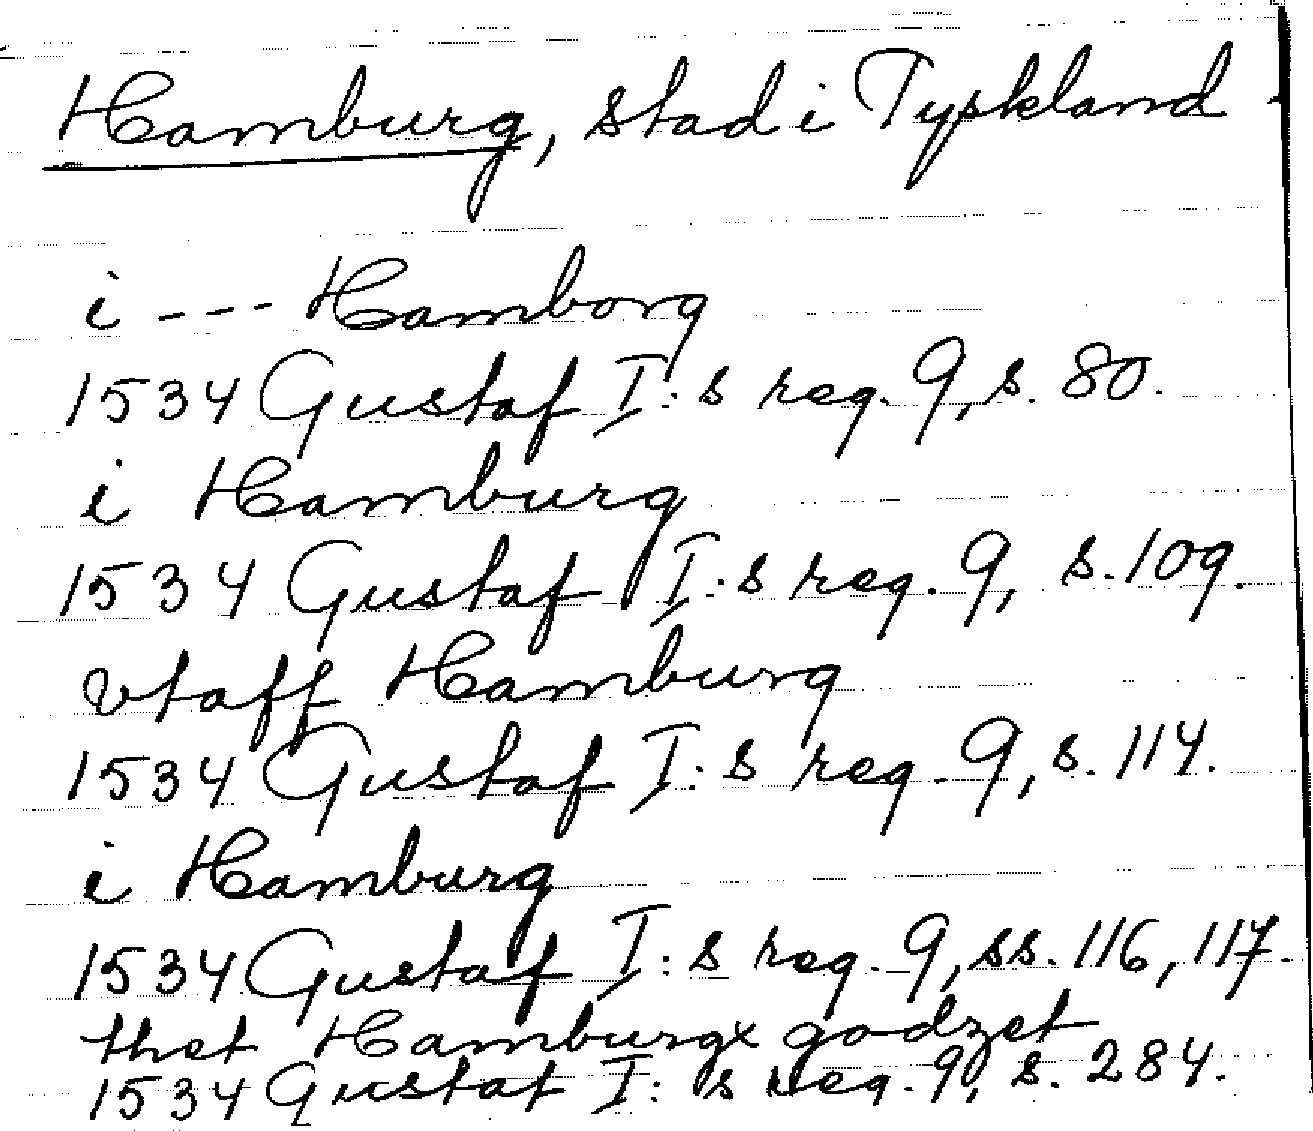 Hamburg, stad i Tyskland
i --- Hamborg
1534 Gustaf I:s reg. 9, s. 80.
i Hamburg
1534 Gustaf I:s reg. 9, s. 109.
vtaff Hamburg
1534 Gustaf I:s reg. 9, s. 114.
i Hamburg
1534 Gustaf I:s reg. 9, ss. 116, 117.
thet Hamburgx godzet
1534 Gustaf I:s reg. 9, s. 284.